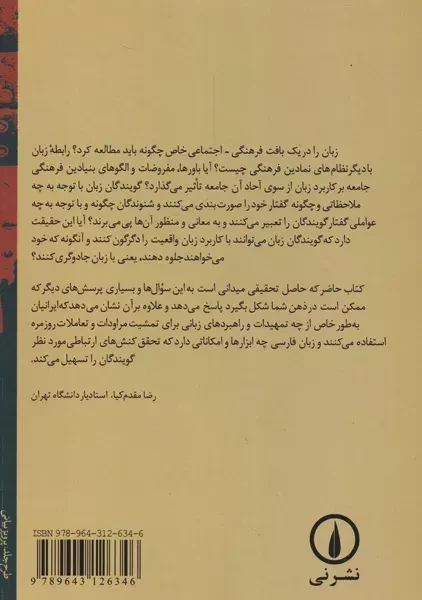 زبان را در یک بافت فرهنگی - اجتماعی خاص چگونه باید مطالعه کرد؟ رابطهٔ زبان
با دیگر نظام‌های نمادین فرهنگی چیست؟ آیا باورها، مفروضات و الگوهای بنیادین فرهنگی
جامعه بر کاربرد زبان از سوی آحاد آن جامعه تأثیر می‌گذارد؟ گویندگان زبان با توجه به چه
ملاحظاتی و چگونه گفتار خود را صورت‌بندی می‌کنند و شنوندگان چگونه و با توجه به چه
عواملی گفتار گویندگان را تعبیر می‌کنند و به معانی و منظور آن‌ها پی می‌برند؟ آیا این حقیقت
دارد که گویندگان زبان می‌توانند با کاربرد زبان واقعیت را دگرگون کنند و آنگونه که خود
می‌خواهند جلوه دهند، یعنی با زبان جادوگری کنند؟
کتاب حاضر که حاصل تحقیقی میدانی است به این سؤال‌ها و بسیاری پرسش‌های دیگر که
ممکن است در ذهن شما شکل بگیرد پاسخ می‌دهد و علاوه بر آن نشان می‌دهد که ایرانیان
به‌طور خاص از چه تمهیدات و راهبردهای زبانی برای تمشیت مراودات و تعاملات روزمره
استفاده می‌کنند و زبان فارسی چه ابزارها و امکاناتی دارد که تحقق کنش‌های ارتباطی مورد نظر
گویندگان را تسهیل می‌کند.
رضا مقدم‌کیا، استادیار دانشگاه تهران
ISBN 978-964-312-634-6
9 789643 126346
نشر نی
طرح جلد: پرویز بیانی